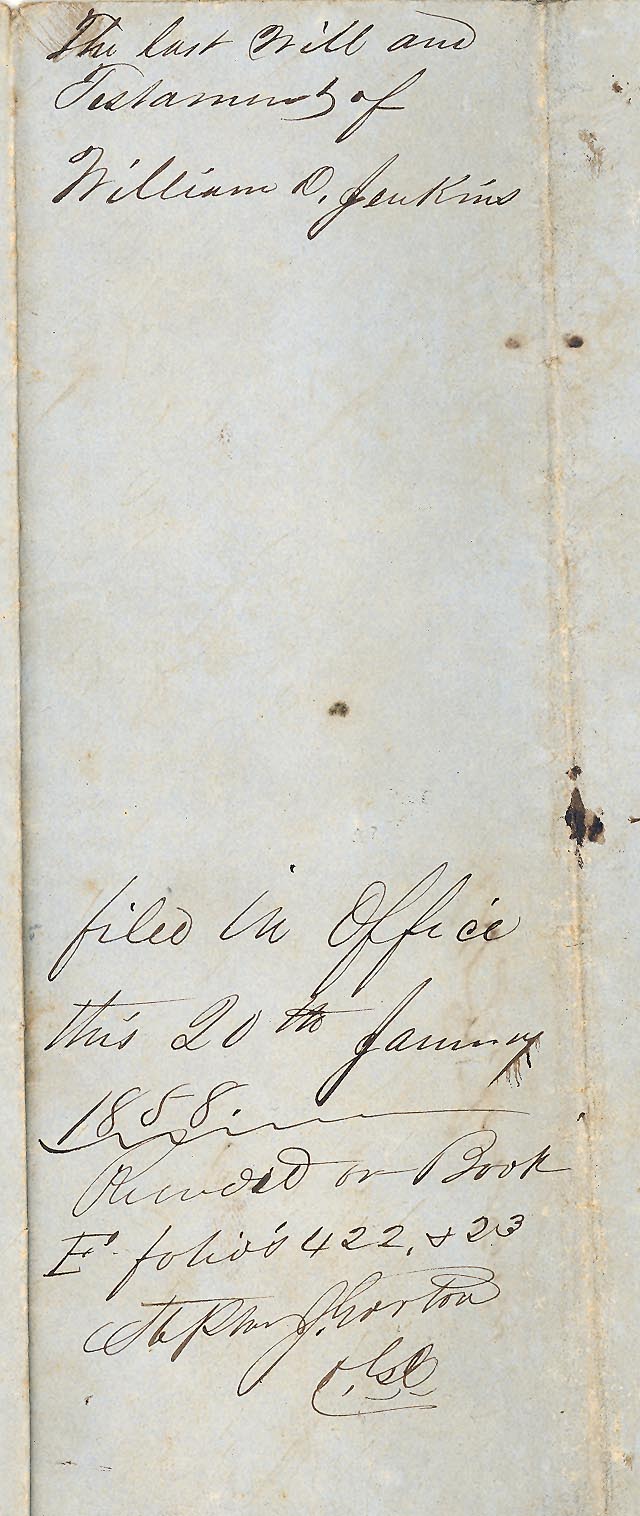 The last Will and
Testament of
William D. Jenkins
filed in Office
this 20th January
1858.
Recorded on Book
E folio's 422, & 23
Stephen J.